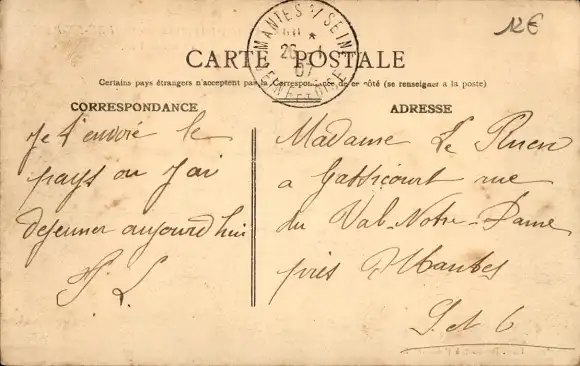 12€
MANTES S/ SEINE
26 -1
07
SEINE ET OISE
CARTE POSTALE
Certains pays étrangers n'acceptent pas la Correspondance de ce côté (se renseigner a la poste)
CORRESPONDANCE
Je t'envoie le
pays ou j'ai
dejeuner aujourd'hui
L
ADRESSE
Madame Le
a Gassicourt rue
du Val-Notre-Dame
près Mantes
S et O